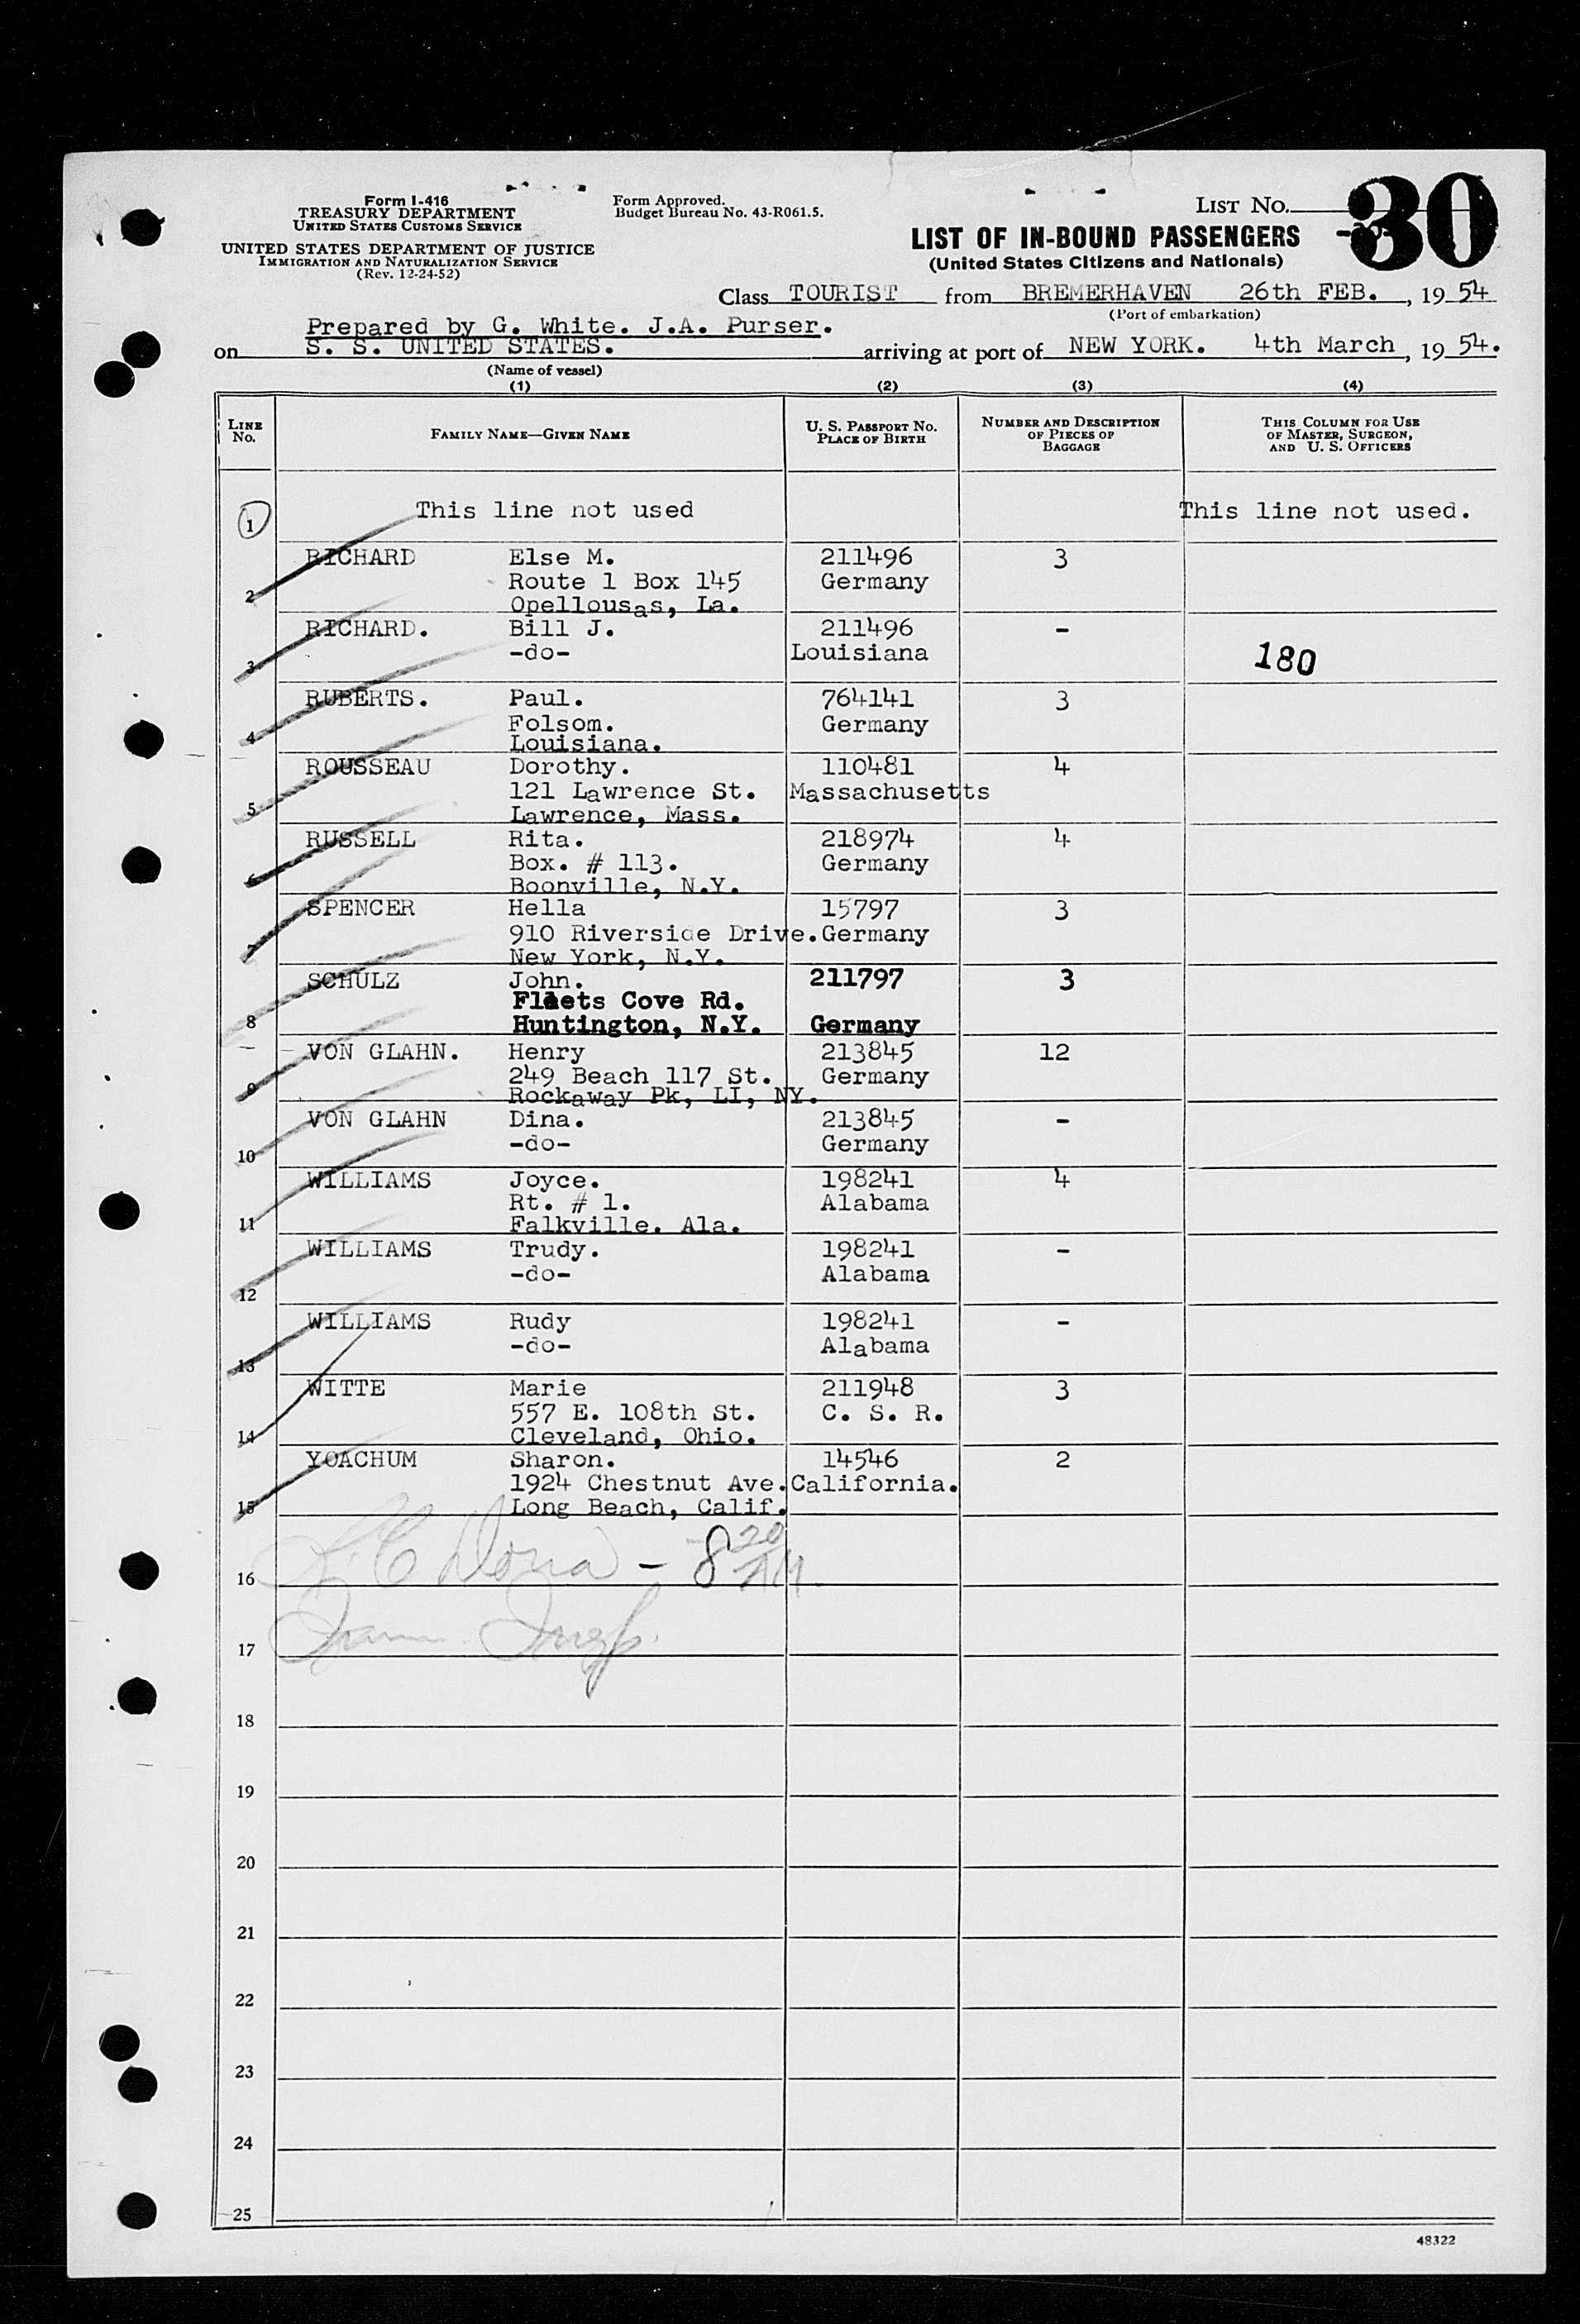 Form I-416
TREASURY DEPARTMENT
UNITED STATES CUSTOMS SERVICE
UNITED STATES DEPARTMENT OF JUSTICE
IMMIGRATION AND NATURALIZATION SERVICE
(Rev. 12-24-52)
Form Approved.
Budget Bureau No. 43-R061.5.
LIST NO. 30
LIST OF IN-BOUND PASSENGERS
(United States Citizens and Nationals)
Class TOURIST from BREMERHAVEN 26th FEB., 1954
(Port of embarkation)
Prepared by G. White. J.A. Purser.
on S. S. UNITED STATES. arriving at port of NEW YORK. 4th March, 1954.
(Name of vessel)
(1) (2) (3) (4)
LINE NO. FAMILY NAME—GIVEN NAME U. S. PASSPORT NO. PLACE OF BIRTH NUMBER AND DESCRIPTION OF PIECES OF BAGGAGE THIS COLUMN FOR USE OF MASTER, SURGEON, AND U. S. OFFICERS
1 This line not used This line not used.
RICHARD Else M. 211496 3
Route 1 Box 145 Germany
2 Opellousas, La.
RICHARD. Bill J. 211496 -
-do- Louisiana 180
3
RUBERTS. Paul. 764141 3
Folsom. Germany
4 Louisiana.
ROUSSEAU Dorothy. 110481 4
121 Lawrence St. Massachusetts
5 Lawrence, Mass.
RUSSELL Rita. 218974 4
Box. # 113. Germany
6 Boonville, N.Y.
SPENCER Hella 15797 3
910 Riverside Drive. Germany
7 New York, N.Y.
SCHULZ John. 211797 3
Fleets Cove Rd.
8 Huntington, N.Y. Germany
VON GLAHN. Henry 213845 12
249 Beach 117 St. Germany
9 Rockaway Pk, LI, NY.
VON GLAHN Dina. 213845 -
-do- Germany
10
WILLIAMS Joyce. 198241 4
Rt. # 1. Alabama
11 Falkville. Ala.
WILLIAMS Trudy. 198241 -
-do- Alabama
12
WILLIAMS Rudy 198241 -
-do- Alabama
13
WITTE Marie 211948 3
557 E. 108th St. C. S. R.
14 Cleveland, Ohio.
YOACHUM Sharon. 14546 2
1924 Chestnut Ave. California.
15 Long Beach, Calif.
16 - 8 20 AM
17
18
19
20
21
22
23
24
25
48322